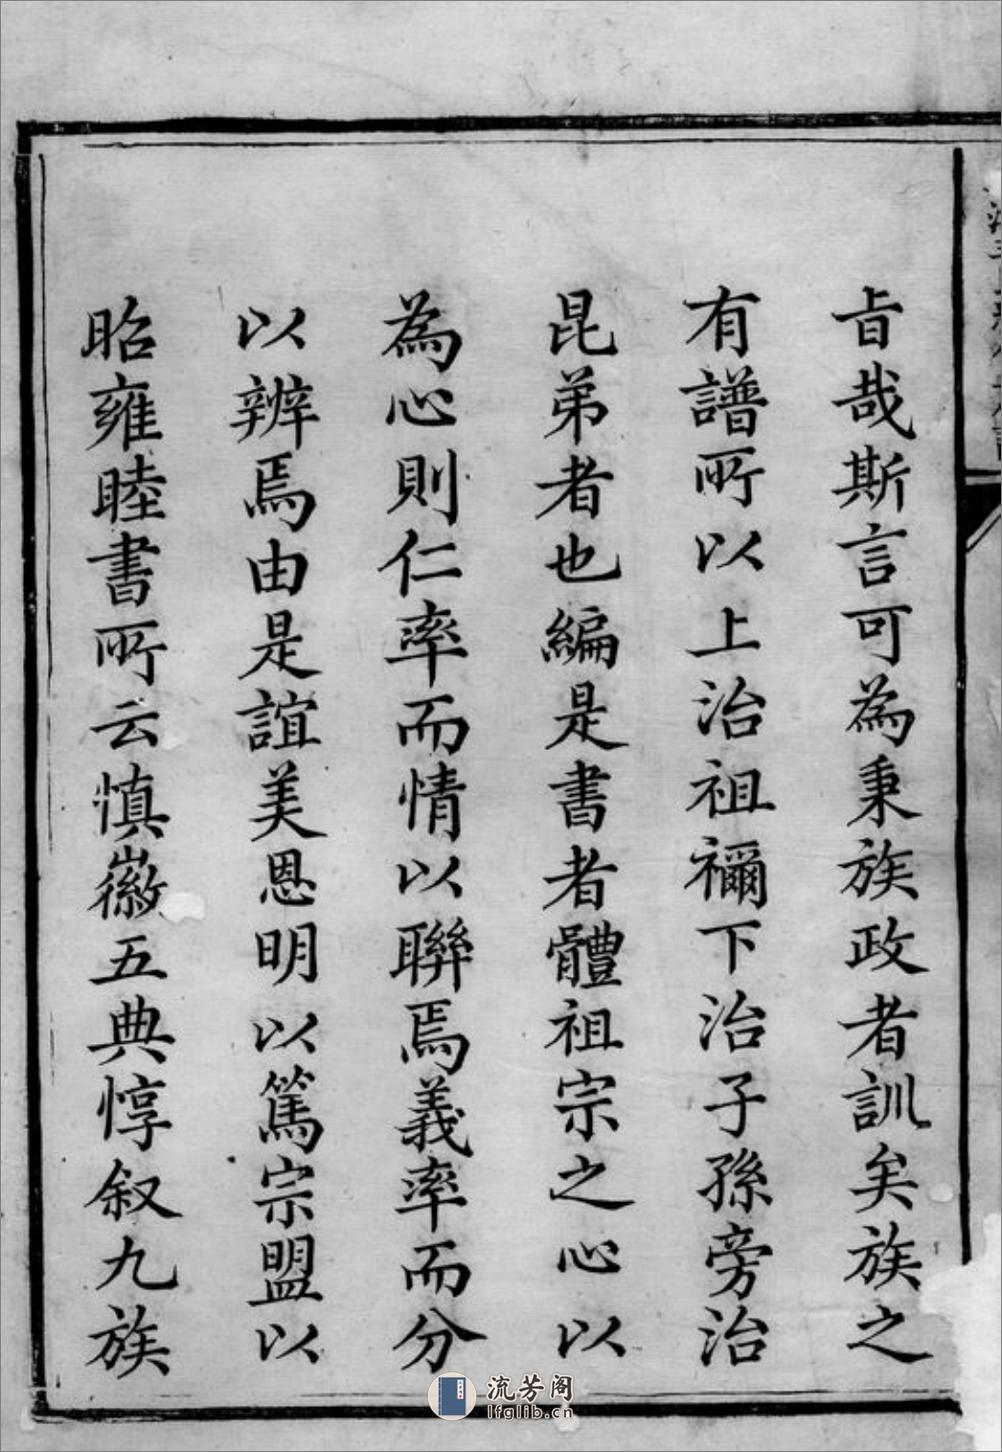 旨哉斯言可為秉族政者訓矣族之
有譜所以上治祖禰下治子孫旁治
昆弟者也編是書者體祖宗之心以
為心則仁率而情以聯焉義率而分
以辨焉由是誼美恩明以篤宗盟以
昭雍睦書所云慎徽五典惇叙九族
流芳阁
lfglib.cn